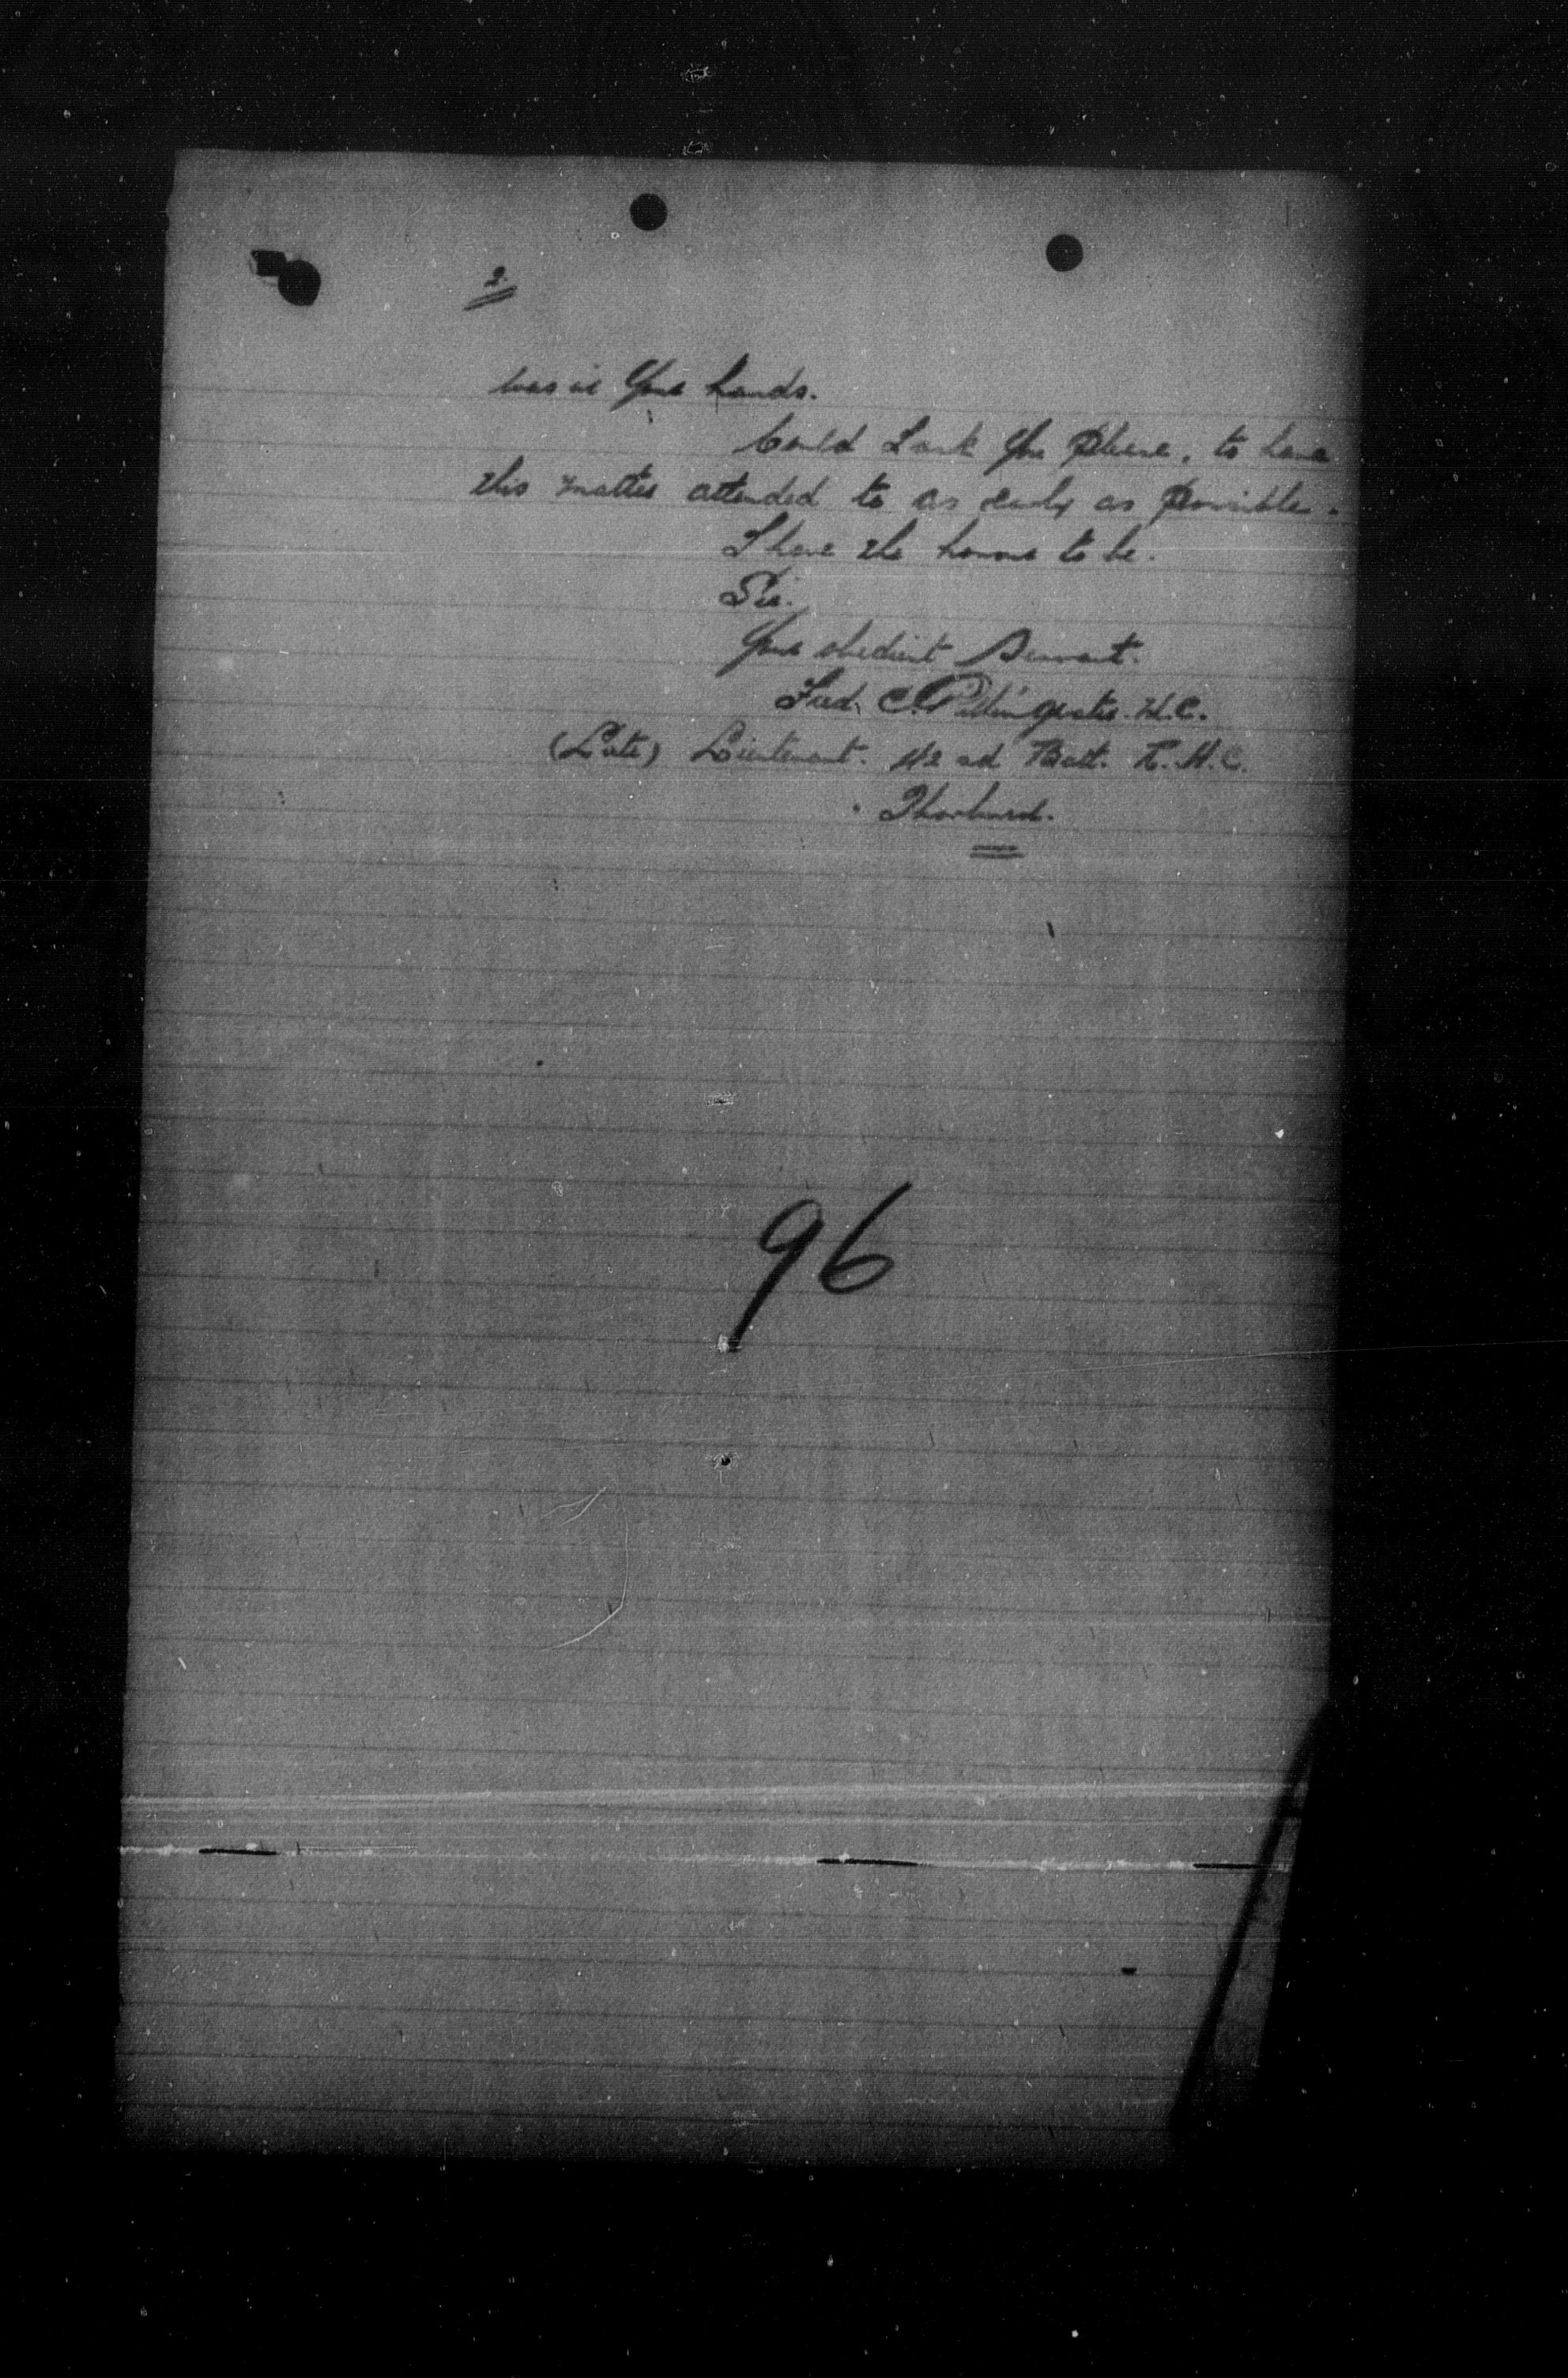 2.
was in your hands.
Could I ask you please, to have
this matter attended to as early as possible.
I have the honour to be.
Sir.
Your obedient Servant.
Fred. C.
(Late) Lieutenant. 42nd Batt.
96